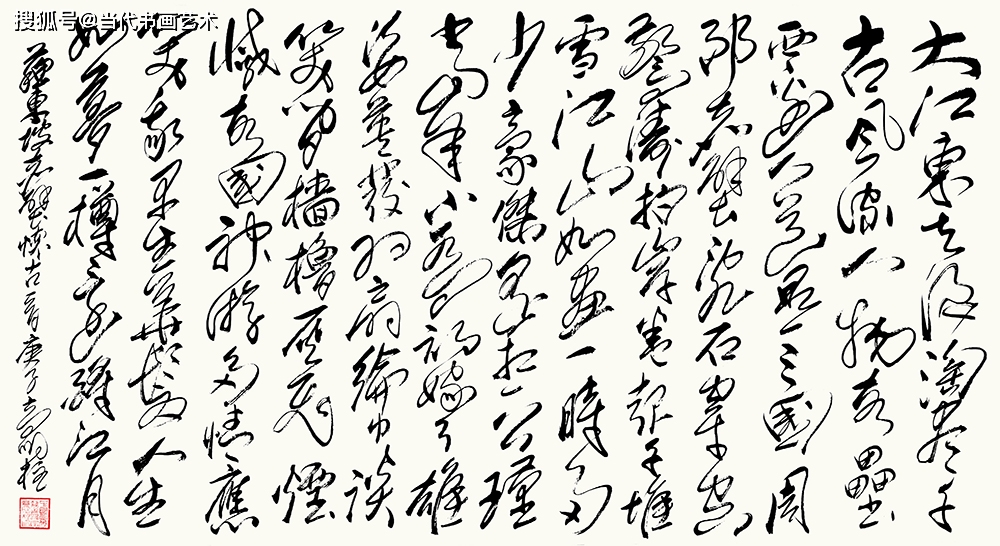 搜狐号@当代书画艺术
大江東去浪淘盡千
古風流人物故壘
西邊人道是三國周
郎赤壁亂石穿空
驚濤拍岸卷起千堆
雪江山如畫一時多
少豪傑遥想公瑾
當年小喬初嫁了雄
姿英發羽扇綸巾談
笑間檣櫓灰飛煙
滅故國神游多情應
笑我早生華髮人生
如夢一樽還酹江月
蘇東坡赤壁懷古一首庚子